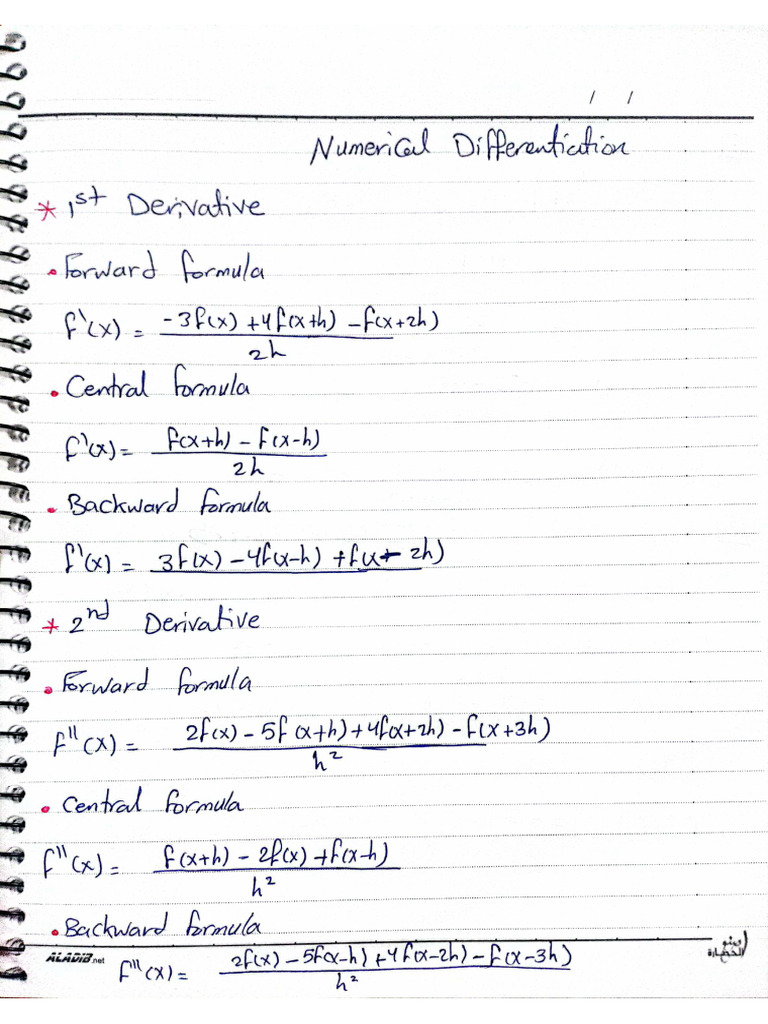 / /
Numerical Differentiation
* 1st Derivative
• Forward formula
f'(x) = -3f(x) +4f(x+h) -f(x+2h)
2h
• Central formula
f'(x) = f(x+h) - f(x-h)
2h
• Backward formula
f'(x) = 3f(x) -4f(x-h) +f(x-2h)
* 2nd Derivative
• Forward formula
f''(x) = 2f(x) - 5f(x+h) +4f(x+2h) -f(x+3h)
h²
• Central formula
f''(x) = f(x+h) - 2f(x) +f(x-h)
h²
• Backward formula
ALADIB.net
f''(x) = 2f(x) -5f(x-h) +4f(x-2h) -f(x-3h)
h²